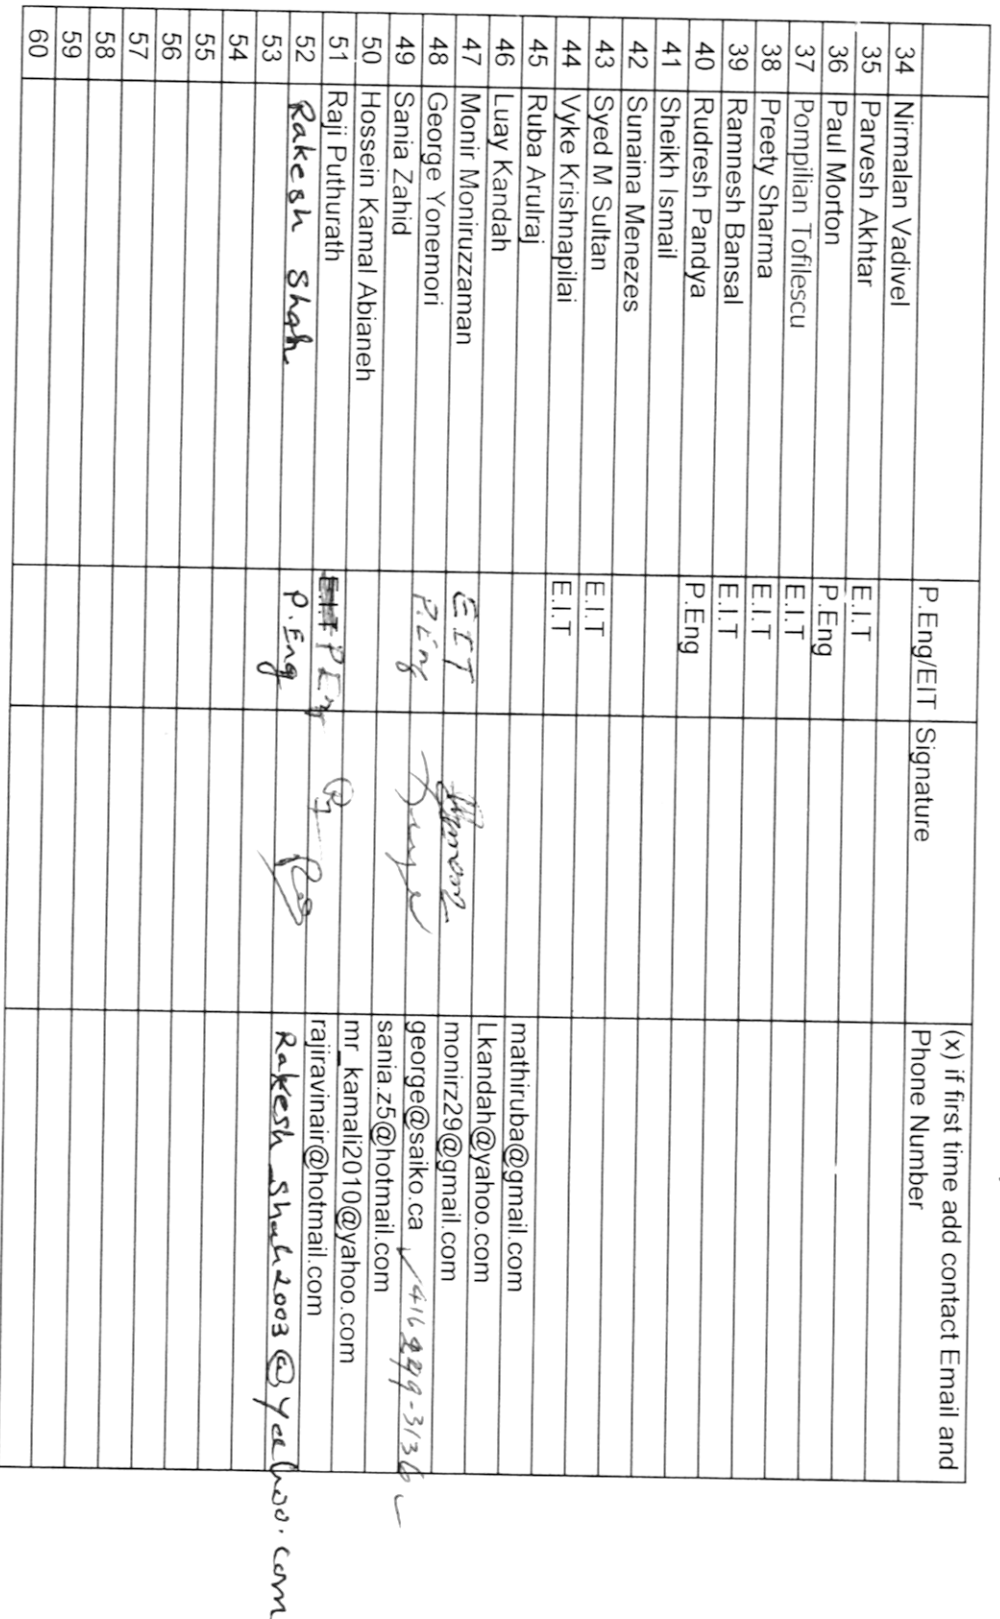 P.Eng/EIT Signature (x) if first time add contact Email and
Phone Number
34 Nirmalan Vadivel
35 Parvesh Akhtar E.I.T
36 Paul Morton P.Eng
37 Pompilian Tofilescu E.I.T
38 Preety Sharma E.I.T
39 Ramnesh Bansal E.I.T
40 Rudresh Pandya P.Eng
41 Sheikh Ismail
42 Sunaina Menezes
43 Syed M Sultan E.I.T
44 Vyke Krishnapilai E.I.T
45 Ruba Arulraj mathiruba@gmail.com
46 Luay Kandah Lkandah@yahoo.com
47 Monir Moniruzzaman EIT monirz29@gmail.com
48 George Yonemori P.Eng george@saiko.ca
49 Sania Zahid sania.z5@hotmail.com
50 Hossein Kamal Abianeh mr_kamali2010@yahoo.com
51 Raji Puthurath P Eng rajiravinair@hotmail.com
52 Rakesh Shah P.Eng Rakesh_Shah2003@yahoo.com
53
54
55
56
57
58
59
60